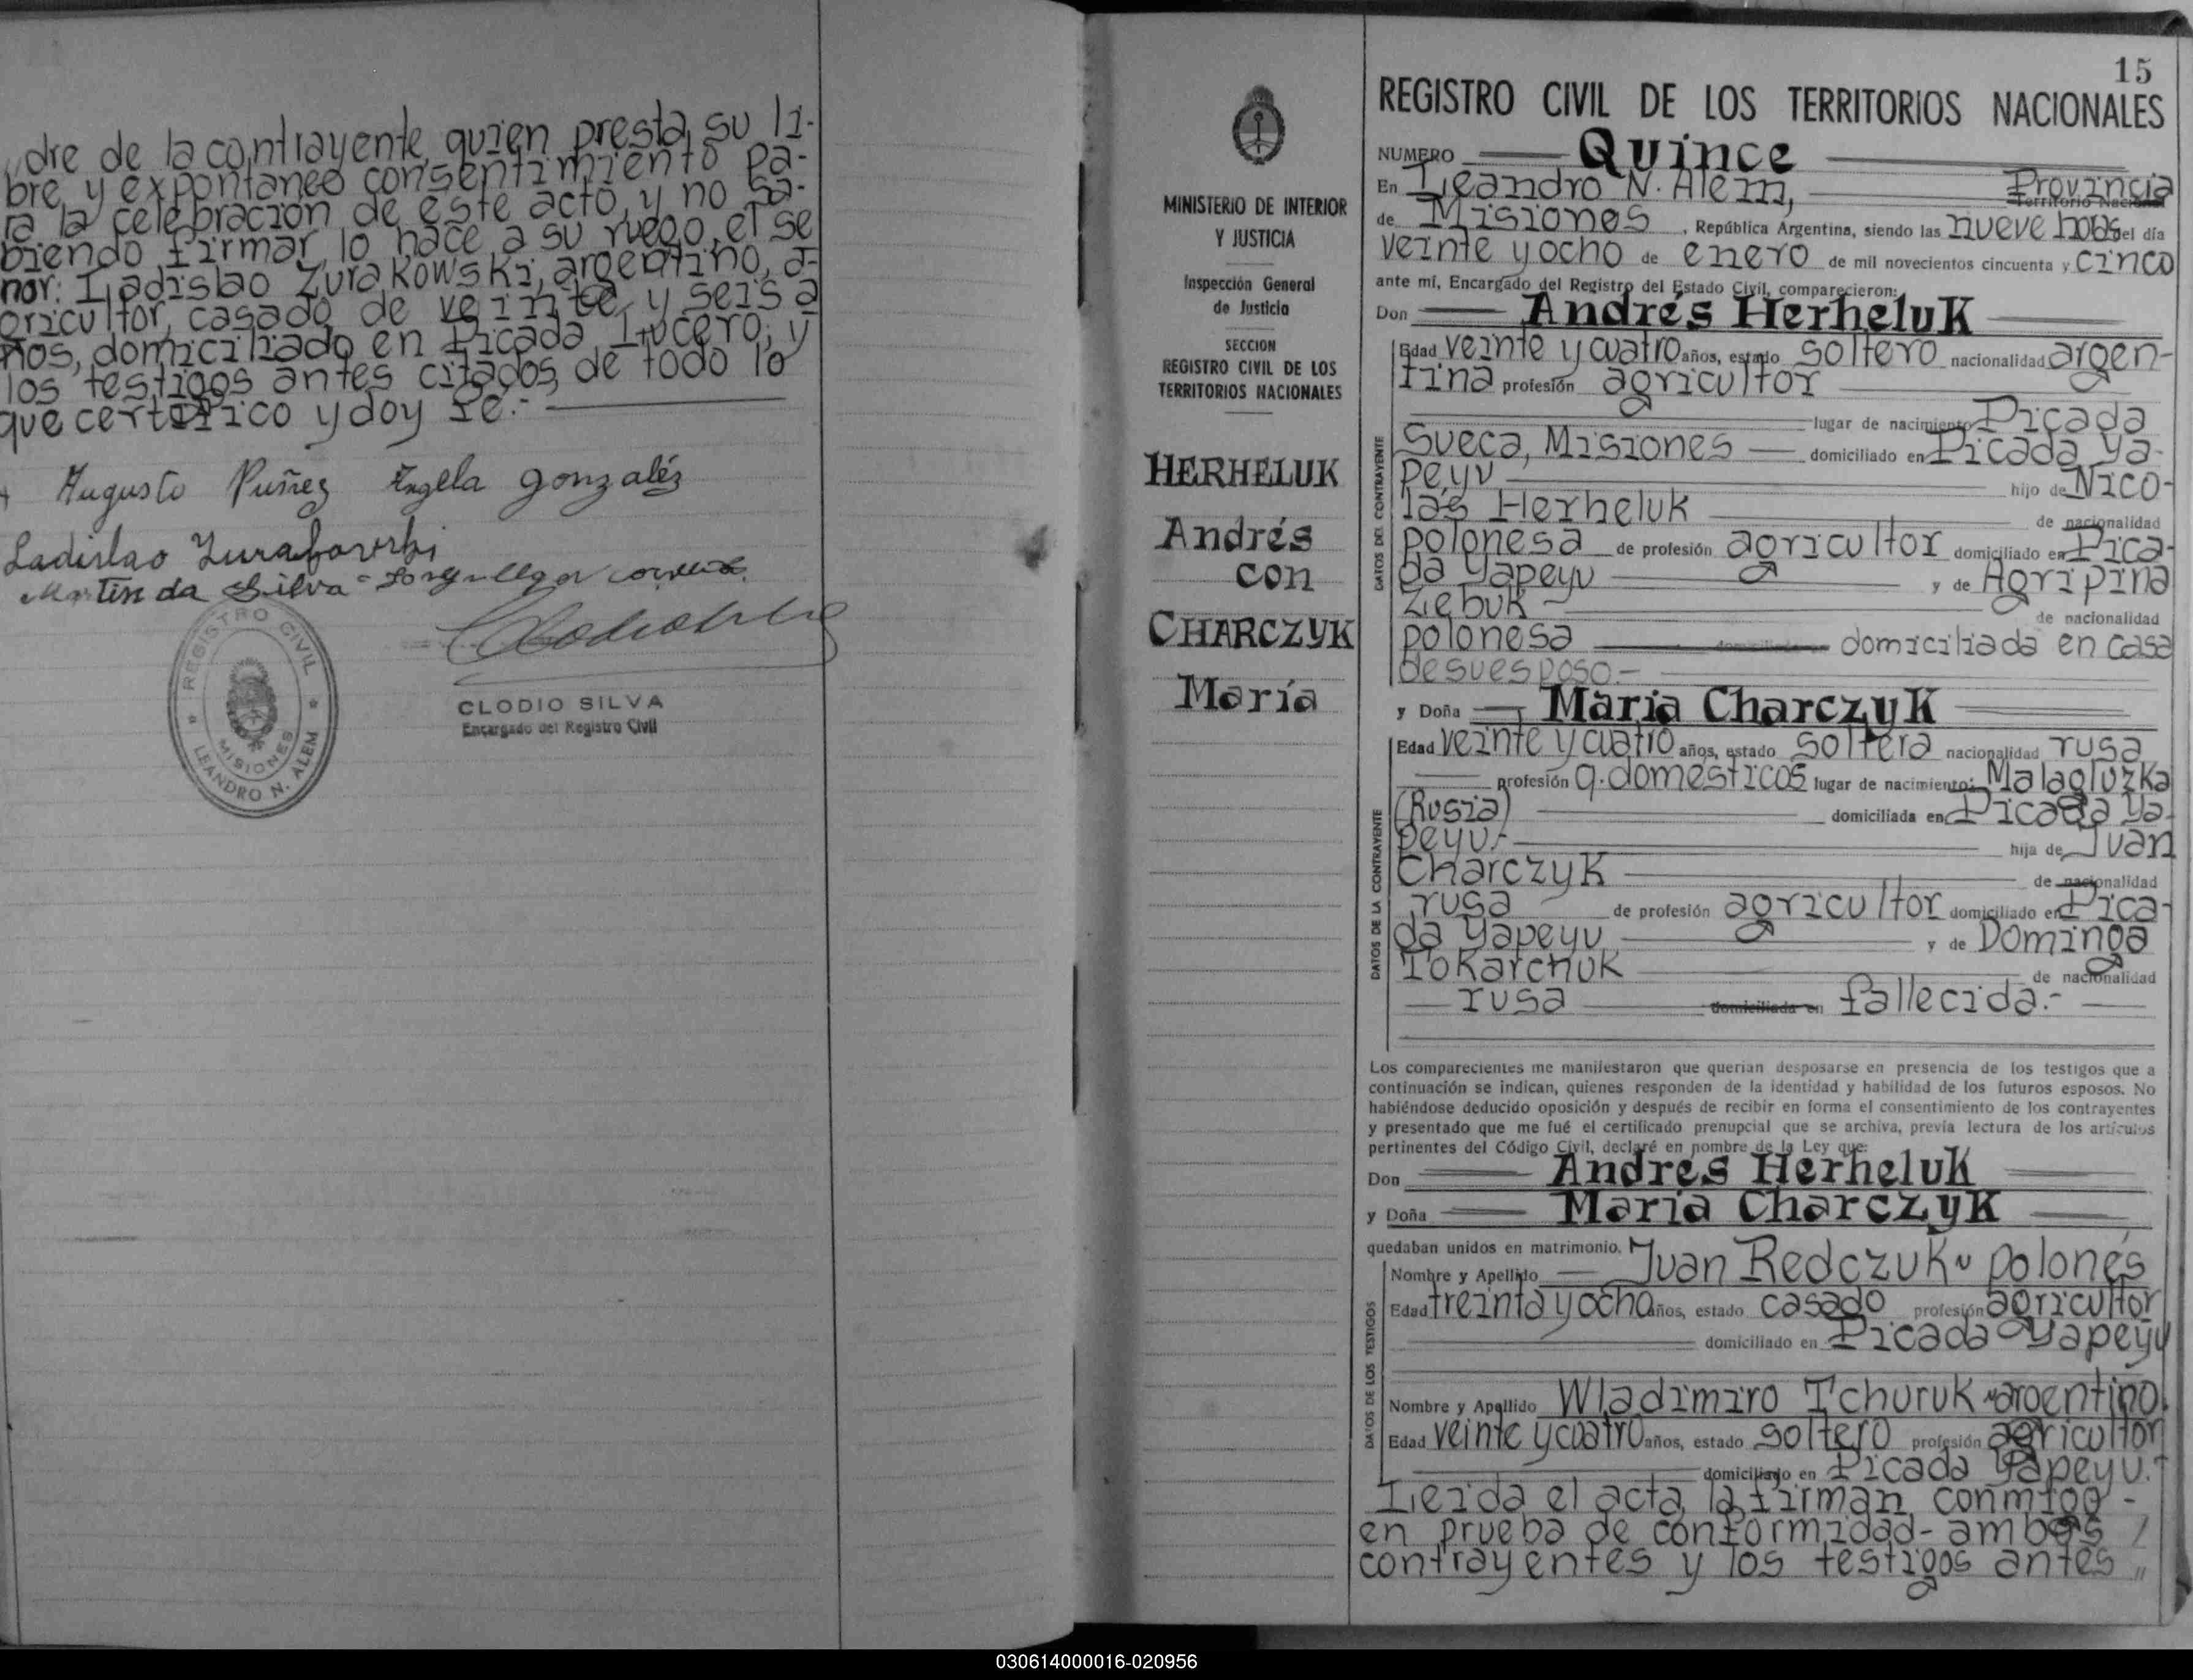 dre de la contrayente, quien presta su li-
bre y expontaneo consentimiento pa-
ra la celebracion de este acto, y no sa-
biendo firmar, lo hace a su ruego, el se
ñor: Ladislao Zurakowski, argentino, a-
gricultor, casado, de veinte y seis a
ños, domiciliado en Picada Lucero; y
los testigos antes citados, de todo lo
que certifico y doy fe.-
Augusto Nuñez Angela Gonzaléz
Ladislao Zurakowski
Martin da Silva
REGISTRO CIVIL
MISIONES
LEANDRO N. ALEM
CLODIO SILVA
Encargado del Registro Civil
MINISTERIO DE INTERIOR
Y JUSTICIA
Inspección General
de Justicia
SECCION
REGISTRO CIVIL DE LOS
TERRITORIOS NACIONALES
HERHELUK
Andrés
con
CHARCZYK
María
15
REGISTRO CIVIL DE LOS TERRITORIOS NACIONALES
NUMERO Quince
En Leandro N. Alem, Provincia
Territorio Nacional
de Misiones, República Argentina, siendo las nueve horas del día
veinte y ocho de enero de mil novecientos cincuenta y cinco
ante mí, Encargado del Registro del Estado Civil, comparecieron:
Don Andrés Herheluk
DATOS DEL CONTRAYENTE
Edad veinte y cuatro años, estado soltero nacionalidad argen-
tina profesión agricultor
lugar de nacimiento Picada
Sueca, Misiones domiciliado en Picada Ya-
peyu hijo de Nico-
lás Herheluk de nacionalidad
polonesa de profesión agricultor domiciliado en Pica-
da Yapeyu y de Agripina
Zebuk de nacionalidad
polonesa domiciliada en casa
de su esposo.-
y Doña Maria Charczyk
DATOS DE LA CONTRAYENTE
Edad veinte y cuatro años, estado soltera nacionalidad rusa
profesión q. domésticos lugar de nacimiento: Malagluzka
(Rusia) domiciliada en Picada Ya-
peyu.- hija de Juan
Charczyk de nacionalidad
rusa de profesión agricultor domiciliado en Pica-
da Yapeyu y de Dominga
Tokarchuk de nacionalidad
rusa domiciliada en fallecida.-
Los comparecientes me manifestaron que querían desposarse en presencia de los testigos que a
continuación se indican, quienes responden de la identidad y habilidad de los futuros esposos. No
habiéndose deducido oposición y después de recibir en forma el consentimiento de los contrayentes
y presentado que me fué el certificado prenupcial que se archiva, previa lectura de los artículos
pertinentes del Código Civil, declaré en nombre de la Ley que:
Don Andres Herheluk
y Doña Maria Charczyk
quedaban unidos en matrimonio.
DATOS DE LOS TESTIGOS
Nombre y Apellido Juan Redczuk polonés
Edad treinta y ocho años, estado casado profesión agricultor
domiciliado en Picada Yapeyu
Nombre y Apellido Wladimiro Tchuruk argentino
Edad veinte y cuatro años, estado soltero profesión agricultor
domiciliado en Picada Yapeyu.
Leida el acta, la firman conmigo -
en prueba de conformidad- ambos
contrayentes y los testigos antes "
030614000016-020956